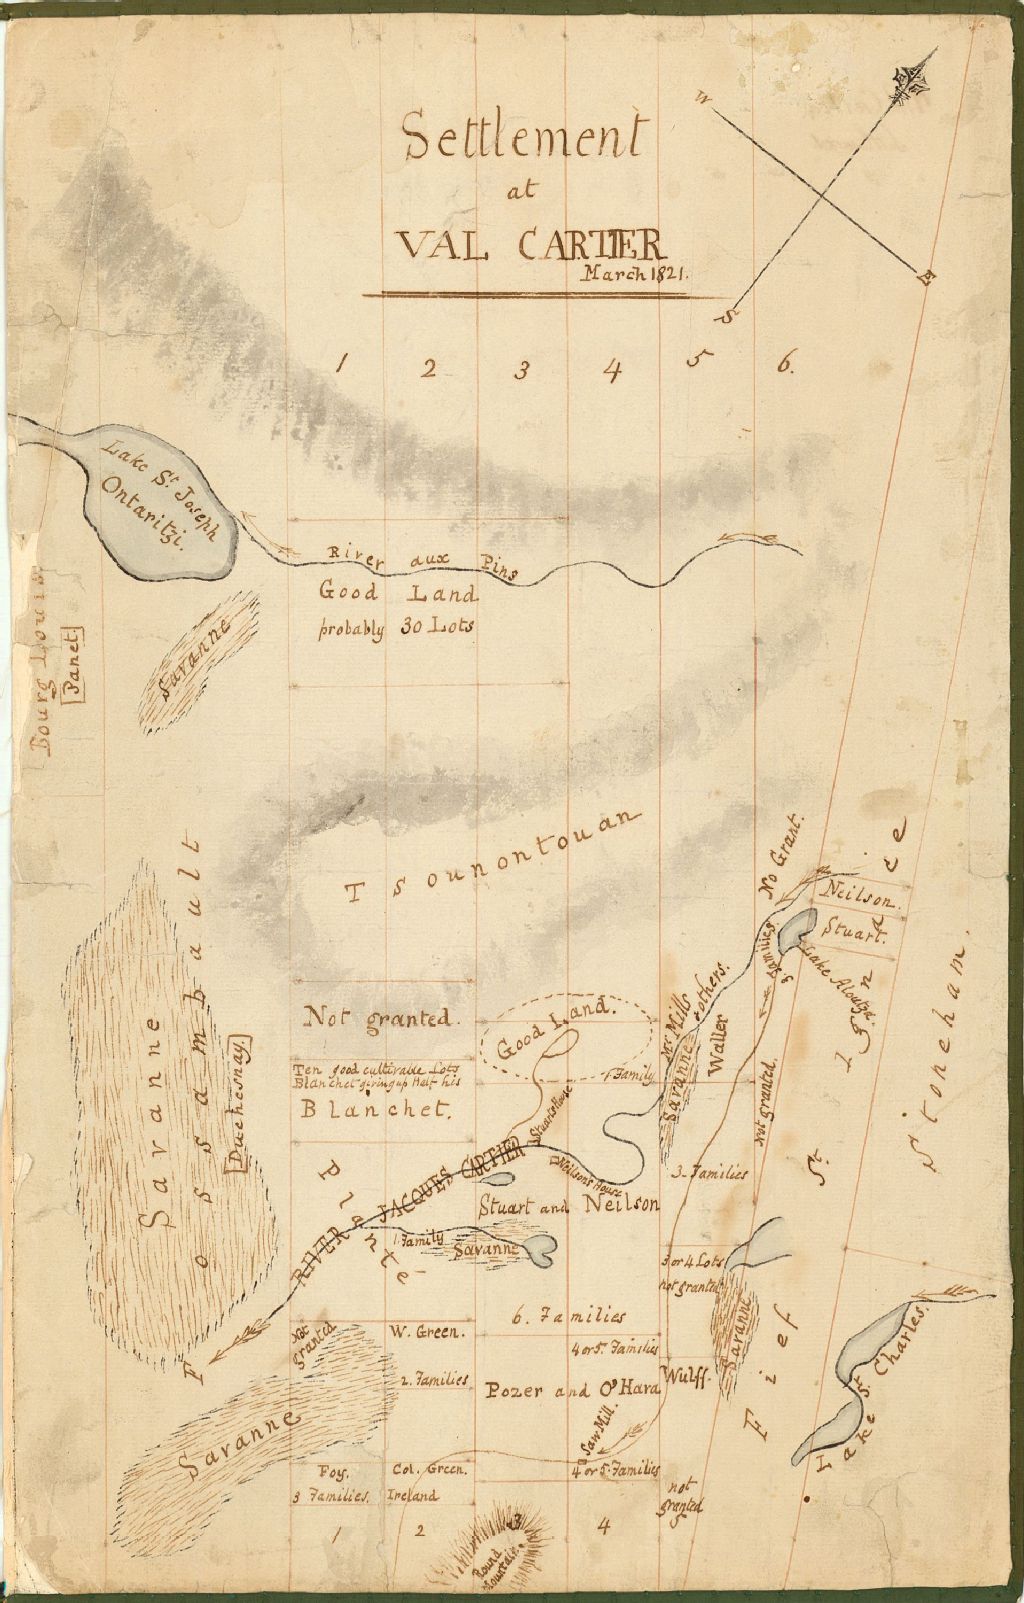 Settlement
at
VAL CARTIER
March 1821.
W
E
S
1 2 3 4 5 6.
Lake St. Joseph
Ontaritzi.
River aux Pins
Good Land
probably 30 Lots
Savanne
Bourg Louis
[Panet]
Tsounontouan
No Grant.
Neilson.
Stuart.
3. Families.
Lake
Fief St. Ignace
Stoneham.
Savanne
Fossambault
[Duchesnay]
Not granted.
Ten good cultivable Lots
Blanchet giving up Half his
Blanchet.
Good Land.
1 Family
Mr. Mills & others.
Savanne
Waller
Not granted.
Stuart's House
Neilson's House
RIVER JACQUES CARTIER
Planté
3. Families
Stuart and Neilson
1. Family
Savanne
3 or 4 Lots
not granted
Savanne
6. Families
4 or 5. Families
Not
granted
W. Green.
2. Families
Pozer and O'Hara
Wulff.
Lake St. Charles.
Savanne
Saw Mill.
4 or 5. Families
Foy.
3 Families.
Col. Green.
Ireland
not
granted
1 2 3 4
Round
Mountain.